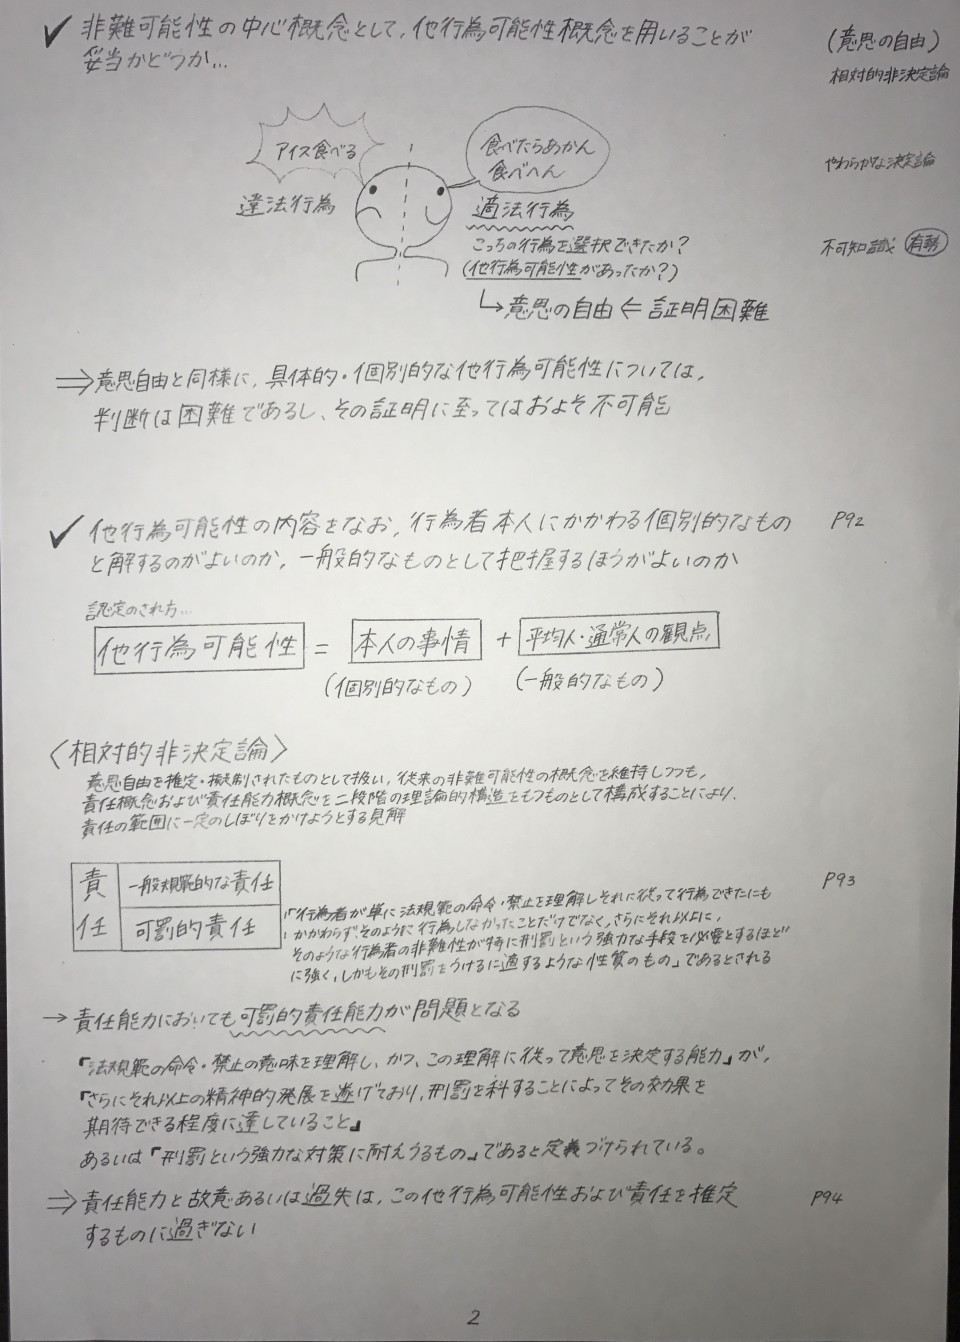 ✓ 非難可能性の中心概念として,他行為可能性概念を用いることが
妥当かどうか…
(意思の自由)
相対的非決定論
やわらかな決定論
不可知論 有勢
アイス食べる
食べたらあかん
食べへん
違法行為
適法行為
こっちの行為を選択できたか?
(他行為可能性があったか?)
↳意思の自由 ⇐ 証明困難
⇒意思自由と同様に,具体的・個別的な他行為可能性については,
判断は困難であるし、その証明に至ってはおよそ不可能
✓ 他行為可能性の内容をなお,行為者本人にかかわる個別的なもの P92
と解するのがよいのか,一般的なものとして把握するほうがよいのか
認定のされ方…
他行為可能性 = 本人の事情 + 平均人・通常人の観点
(個別的なもの) (一般的なもの)
〈相対的非決定論〉
意思自由を推定・擬制されたものとして扱い,従来の非難可能性の概念を維持しつつも,
責任概念および責任能力概念を二段階の理論的構造をもつものとして構成することにより,
責任の範囲に一定のしぼりをかけようとする見解
責任
一般規範的な責任
可罰的責任
P93
「行為者が単に法規範の命令・禁止を理解しそれに従って行為できたにも
かかわらずそのように行為しなかったことだけでなく,さらにそれ以上に,
そのような行為者の非難性が特に刑罰という強力な手段を必要とするほど
に強く,しかもその刑罰をうけるに適するような性質のもの」であるとされる
→ 責任能力においても可罰的責任能力が問題となる
「法規範の命令・禁止の意味を理解し、かつ、この理解に従って意思を決定する能力」が,
「さらにそれ以上の精神的発展を遂げており,刑罰を科することによってその効果を
期待できる程度に達していること」
あるいは「刑罰という強力な対策に耐えうるもの」であると定義づけられている。
⇒ 責任能力と故意あるいは過失は,この他行為可能性および責任を推定 P94
するものに過ぎない
2